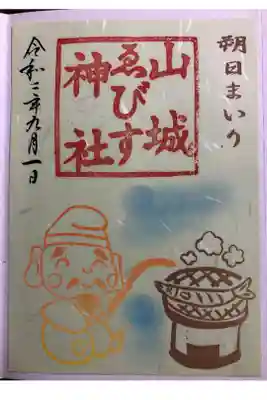 朔日まいり
山城
ゑびす
神社
令和二年九月一日